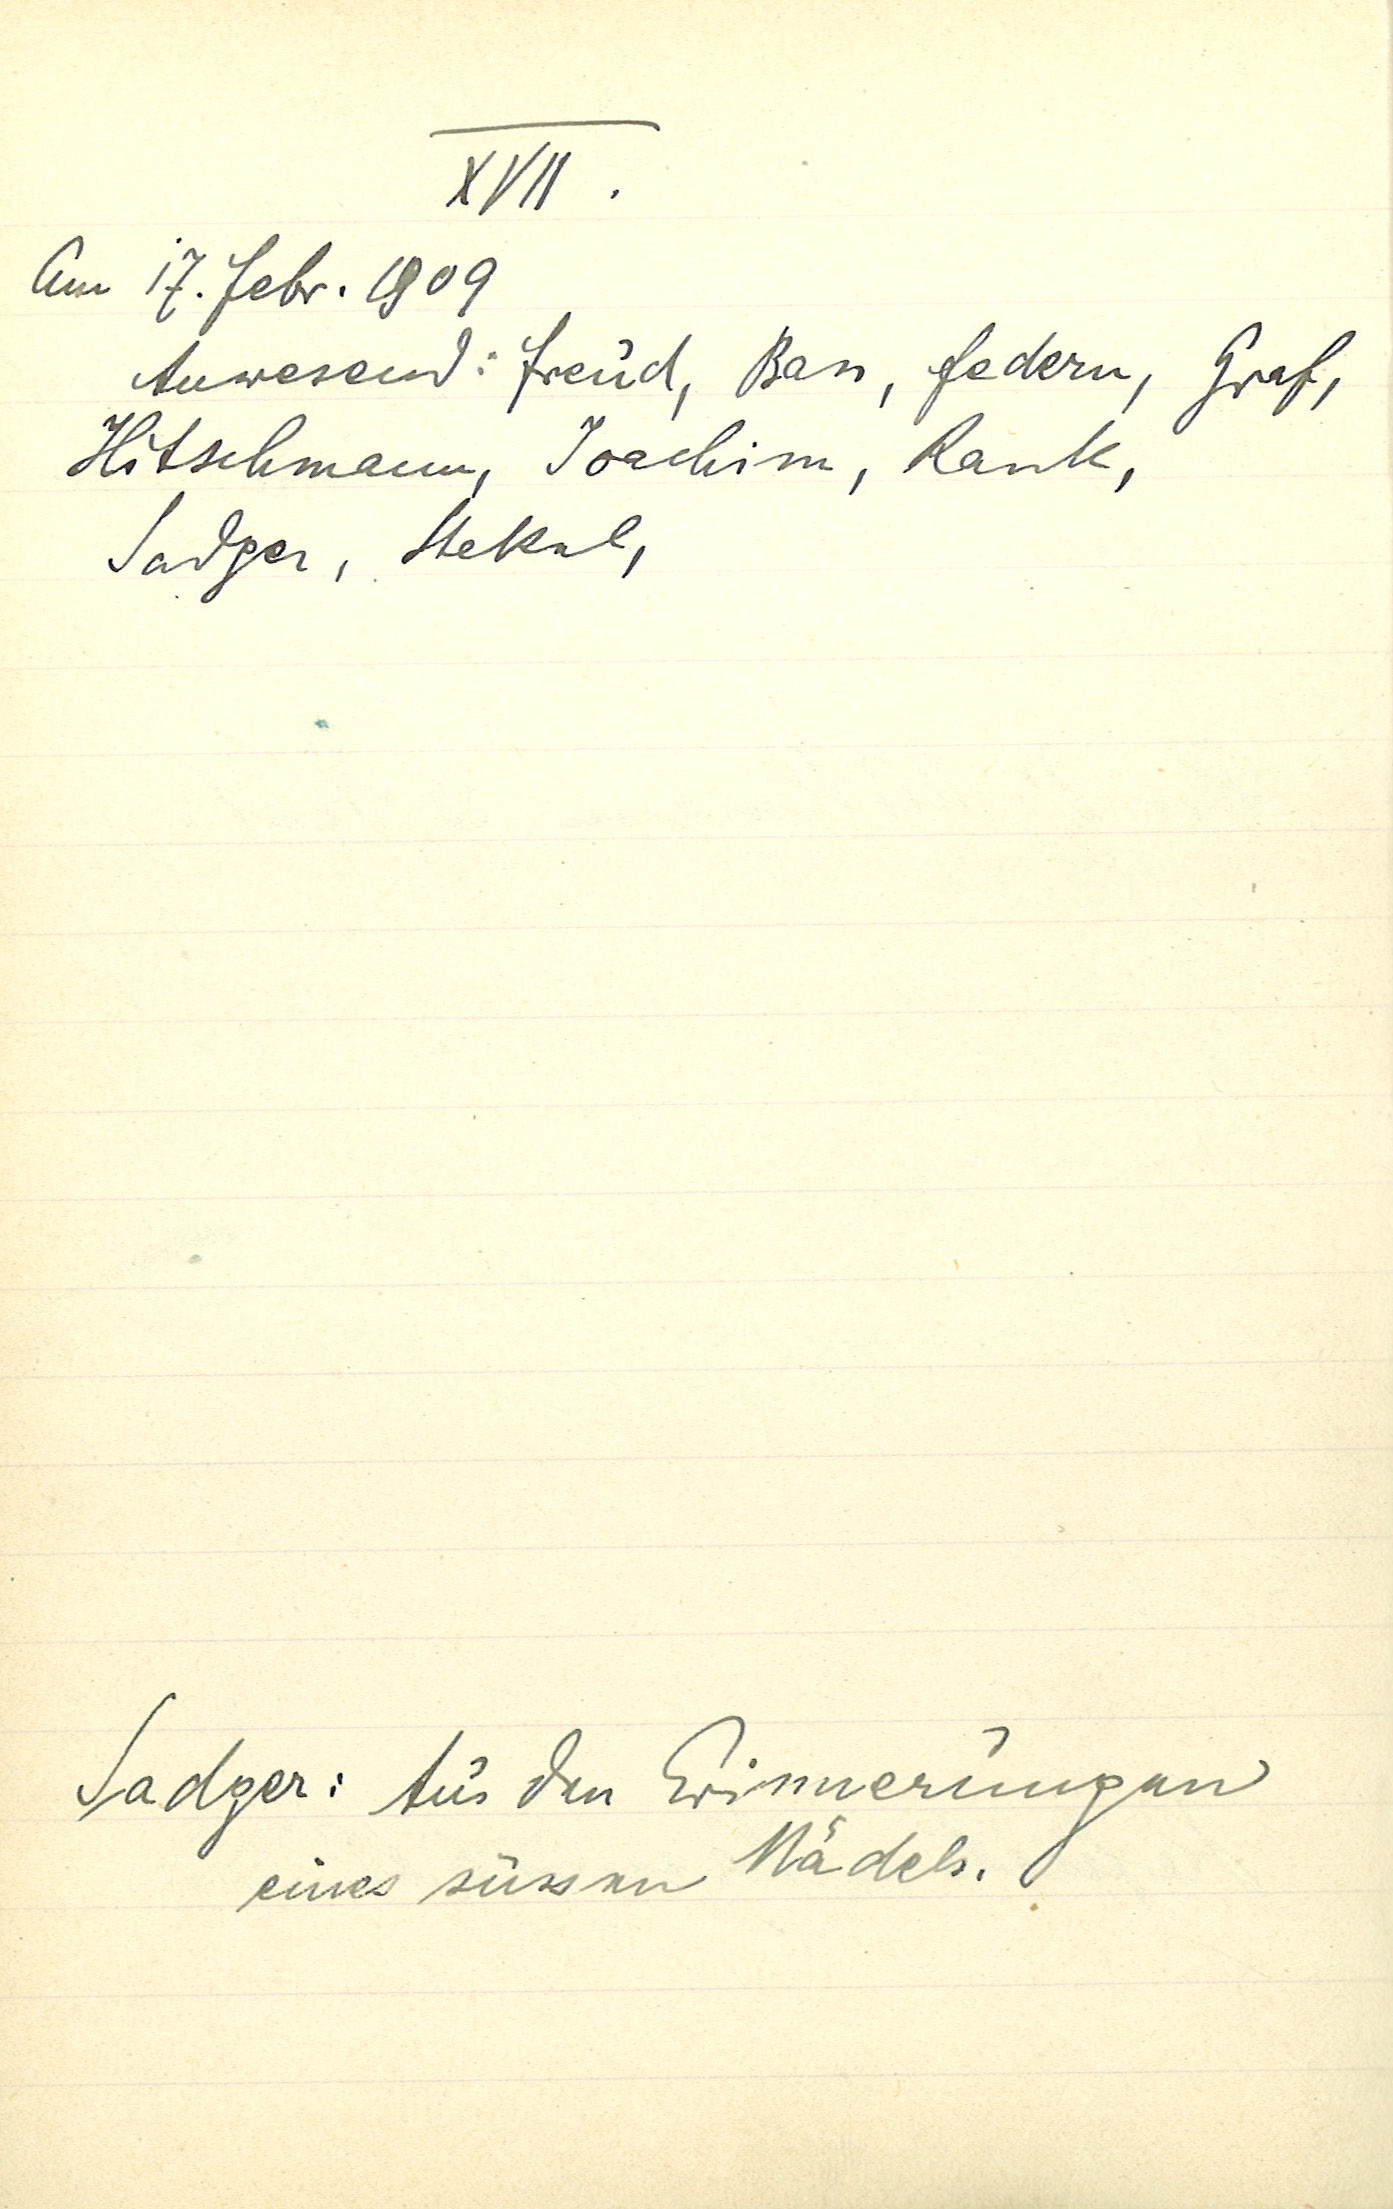 XVII.
Am 17. Febr. 1909
Anwesend: Freud, Bass, Federn, Graf,
Hitschmann, Joachim, Rank,
Sadger, Stekel,
Sadger: Aus den Erinnerungen
eines süssen Mädels.